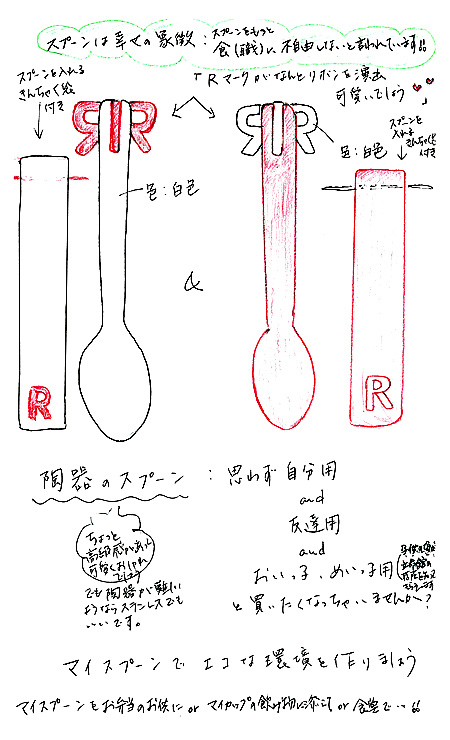 スプーンは幸せの象徴:スプーンをもつと
食(職)に不自由しないと言われています!!
「Rマークがなんとリボンを演出
可愛いでしょう
スプーンを入れる
きんちゃく袋
付き
スプーンを
入れる
きんちゃく袋
付き
R R
色:白色
色:白色
&
R
R
陶器のスプーン:思わず自分用
and
友達用
and
おいっ子、めいっ子用
と買いたくなっちゃいませんか?
ちょっと
高級感があり
可愛くおしゃれ
でしょう
でも陶器が難しい
ようならステンレスでも
いいです。
マイスプーンでエコな環境を作りましょう
マイスプーンをお弁当のお供に or マイカップの飲み物に添えて or 食堂で…!!